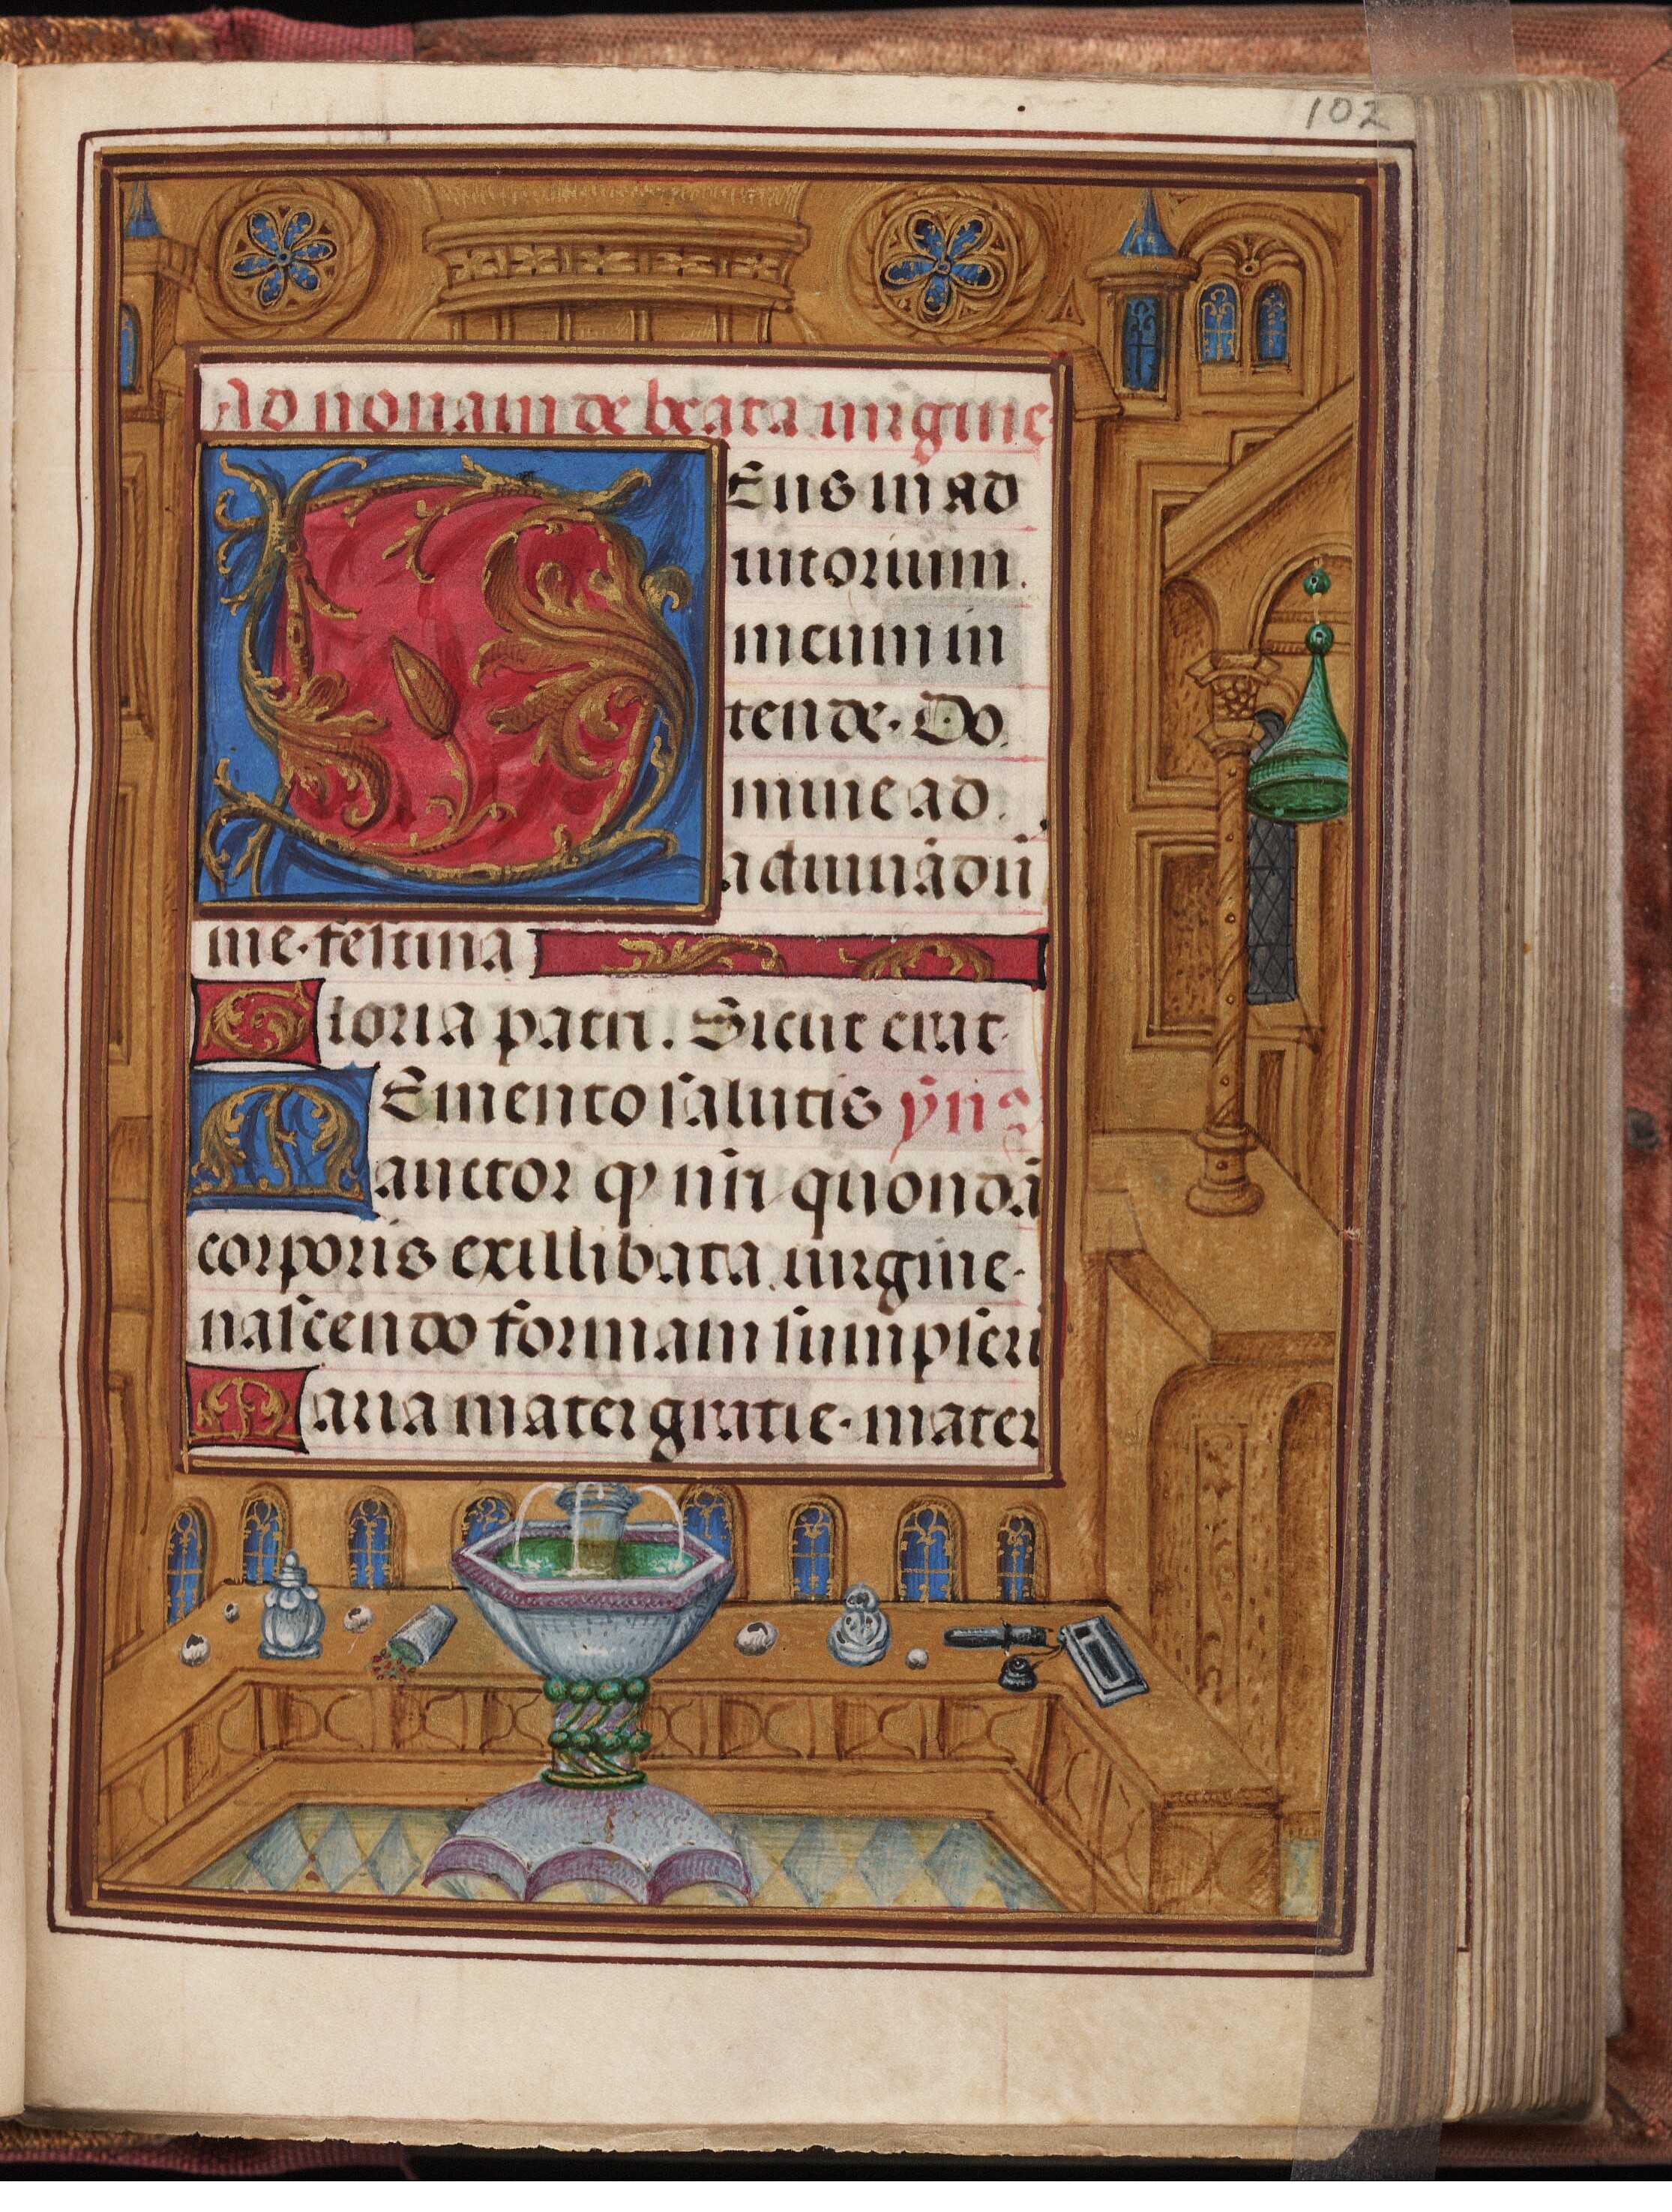 102
Ad nonam de beata uirgine
DEus in ad
iutorium
meum in
tende. Do
mine ad
adiuuādū
me. festina
Gloria patri. Sicut erat
MEmento salutis ẏn9
auctor qꝫ nr̄i quondā
corporis ex illibata uirgine.
nascendo formam sumpseri
Maria mater gratie. mater